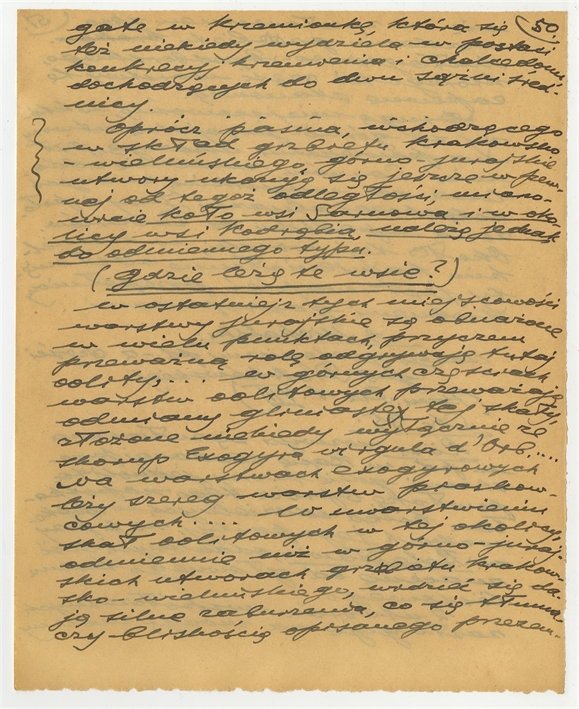 50.
gate w krzemionkę, która się
też niekiedy wydziela w postaci
konkrecyj krzemienia i chalcedonu,
dochodzących do dwu sążni śred-
nicy.
Oprócz pasma, wchodzącego
w skład grzbietu krakowsko
-wieluńskiego, górno-jurajskie
utwory ukazują się jeszcze w pew-
nej od tegoż odległości, miano-
wicie koło wsi Sarnowa i w oko-
licy wsi Kodrębia, należą jednak
do odmiennego typu.
(Gdzie leżą te wsie?)
W ostatniej z tych miejscowości
warstwy jurajskie są obnażone
w wielu punktach, przyczem
przeważną rolę odgrywają tutaj
oolity, .... W górnych częściach
warstw oolitowych przeważają
odmiany gliniastej tej skały,
złożone niekiedy wyłącznie ze
skorup Exogyra virgula d'Orb.....
Na warstwach exogyrowych
leży szereg warstw piaskow-
cowych..... W uwarstwieniu
skał oolitowych w tej okolicy,
odmiennie niż w górno-juraj-
skich utworach grzbietu krakow-
sko-wieluńskiego, widzieć się da-
ją silne zaburzenia, co się tłuma-
czy bliskością opisanego przezem-